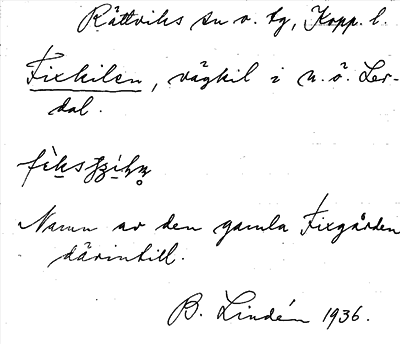 Rättviks sn o. tg, Kopp. l.
Fixkilen, vägkil i n. ö. Ler-
dal.
Namn av den gamla Fixgården
därintill.
B. Lindén 1936.